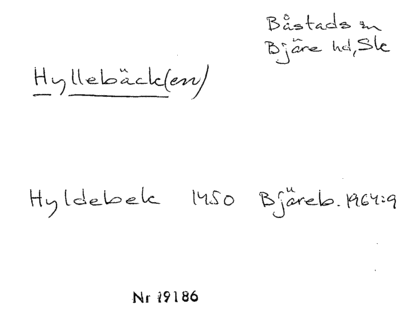 Båstads sn
Bjäre hd, Sk
Hyllebäck(en)
Hyldebek 1450 Bjäreb. 1964:9
Nr 19186